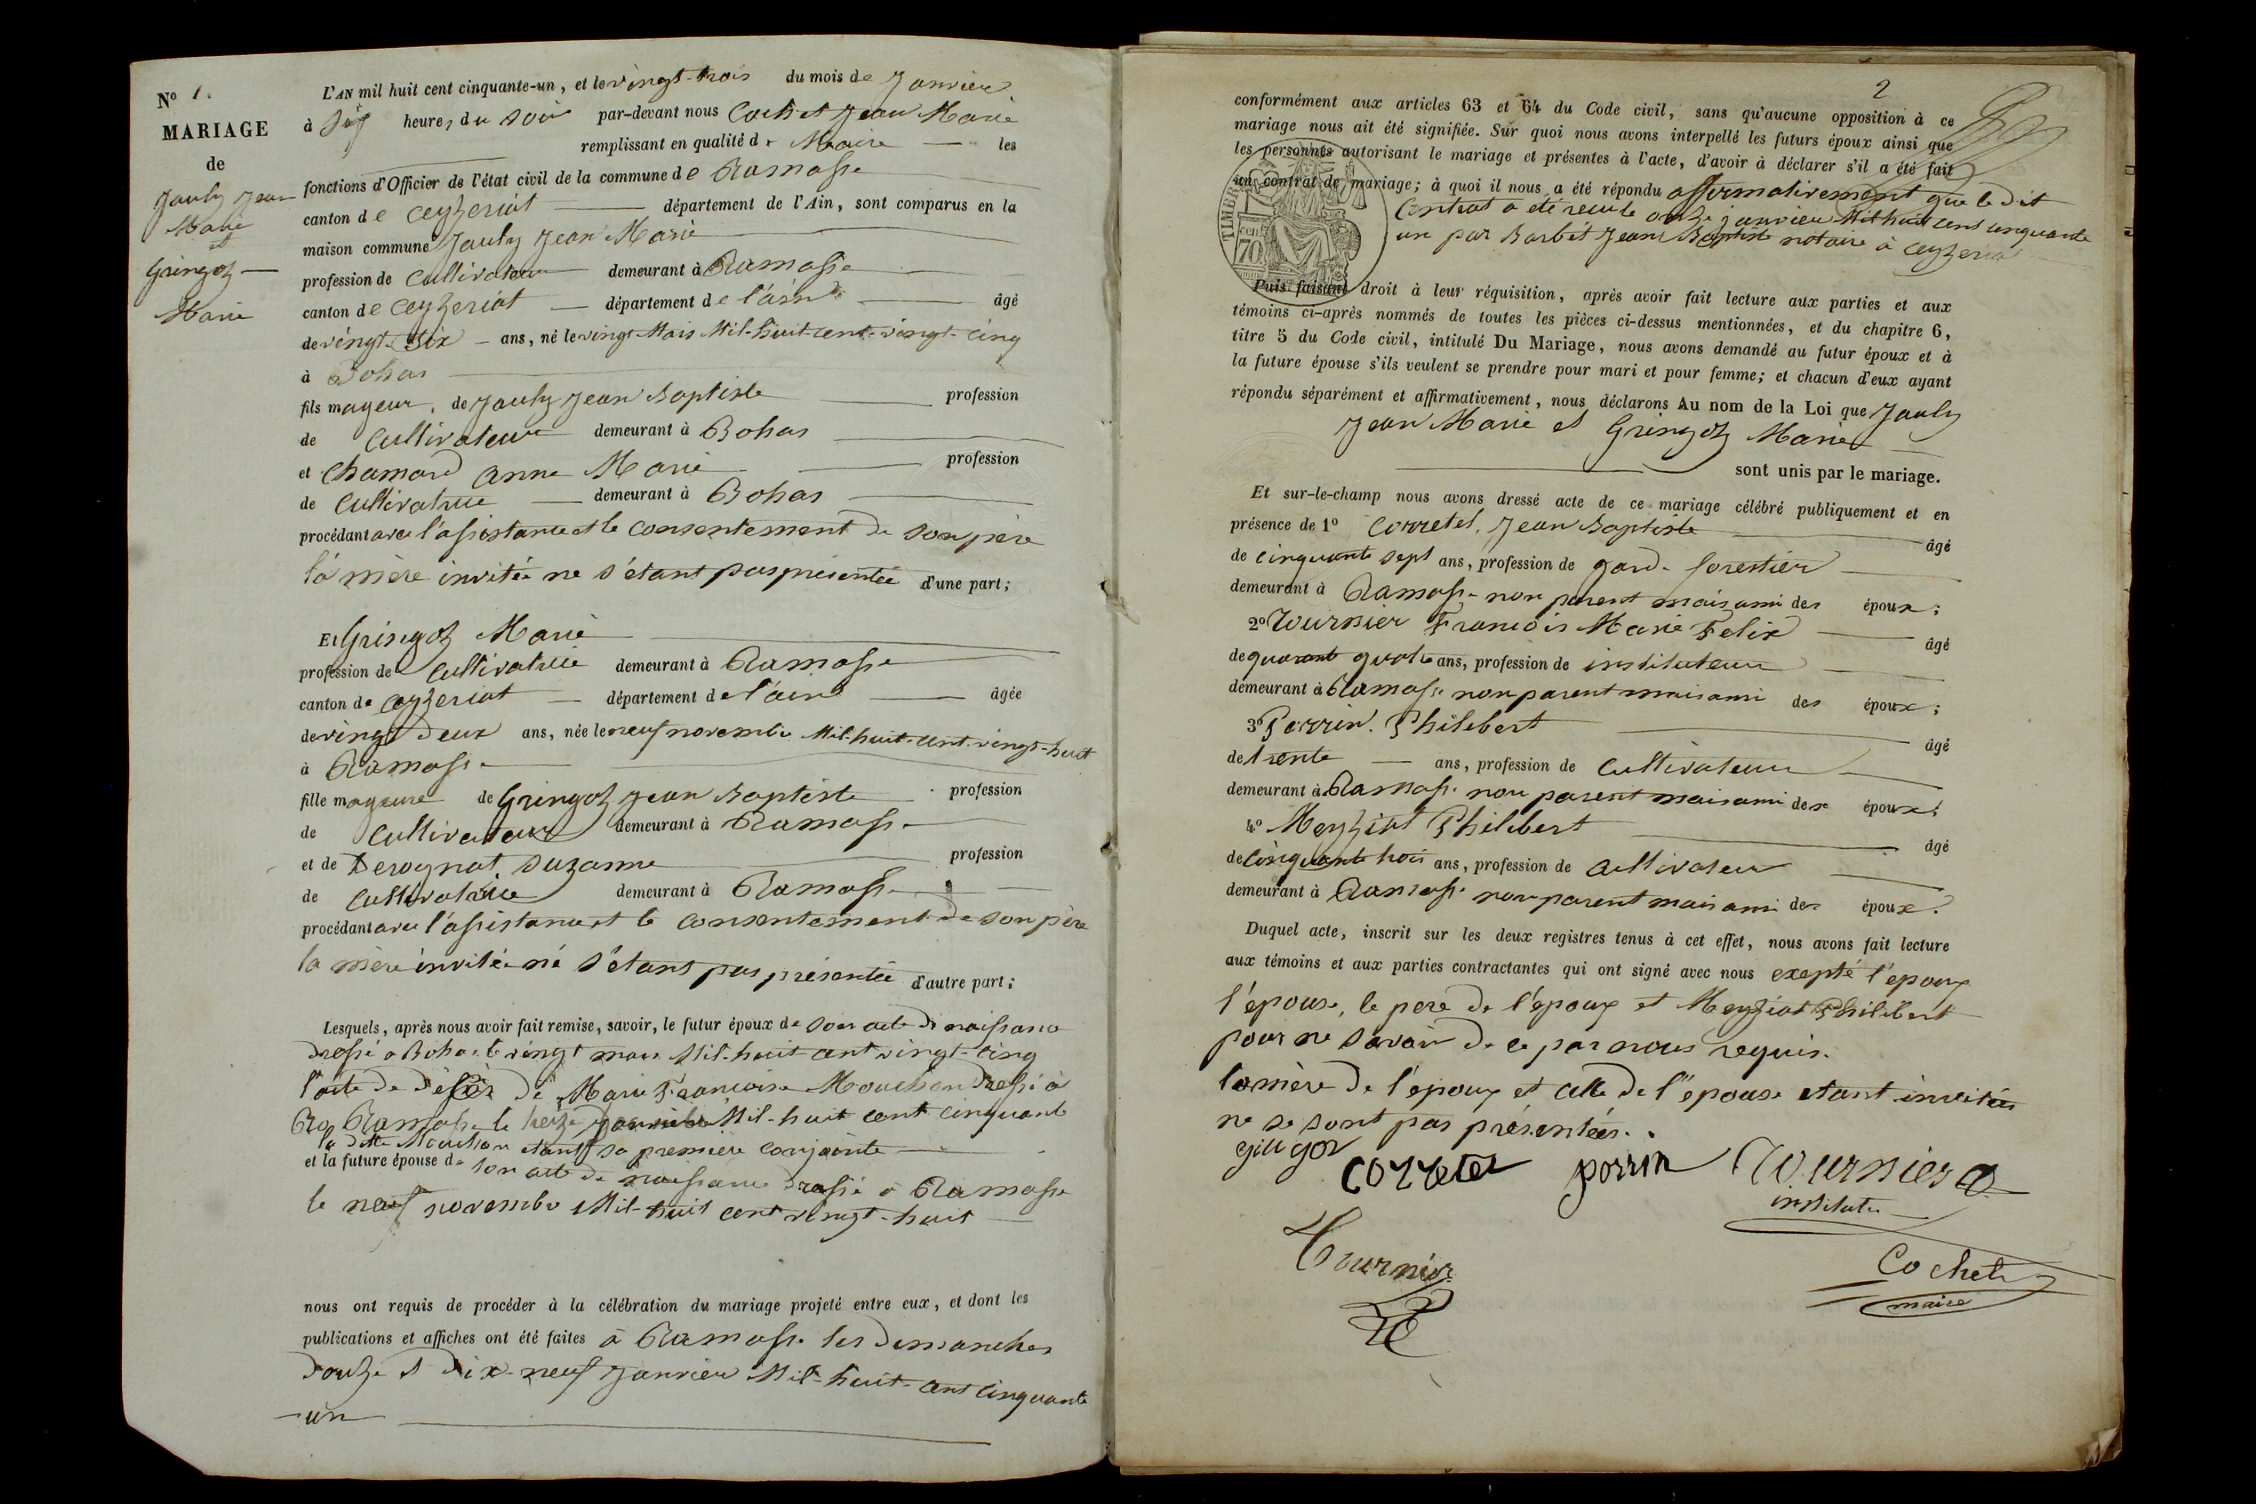 No 1.
MARIAGE
de
Jauly Jean
Marie
et
Gringoz
Marie
L'AN mil huit cent cinquante-un, et le vingt-trois du mois de Janvier
à six heures du soir par-devant nous Cochet Jean Marie
remplissant en qualité de Maire les
fonctions d'Officier de l'état civil de la commune de Ramasse
canton de Ceyzeriat département de l'Ain, sont comparus en la
maison commune Jauly Jean Marie
profession de Cultivateur demeurant à Ramasse
canton de Ceyzeriat département de l'ain âgé
de vingt-six ans, né le vingt Mars Mil-huit-cent-vingt-cinq
à Bohas
fils mageur, de Jauly Jean Baptiste profession
de Cultivateur demeurant à Bohas
et Chamard Anne Marie profession
de Cultivatrice demeurant à Bohas
procédant avec l'assistance et le consentement de son père
la mère invitée ne s'étant pas présentée d'une part;
Et Gringoz Marie
profession de Cultivatrice demeurant à Ramasse
canton de Ceyzeriat département de l'ain âgée
de vingt deux ans, née le neuf novembre Mil-huit-cent-vingt-huit
à Ramasse
fille mageure de Gringoz Jean Baptiste profession
de Cultivateur demeurant à Ramasse
et de Derognat Suzanne profession
de Cultivatrice demeurant à Ramasse
procédant avec l'assistance et le consentement de son père
la mère invitée ne s'étant pas présentée d'autre part;
Lesquels, après nous avoir fait remise, savoir, le futur époux de son acte de naissance
dressé a Bohas le vingt mars Mil-huit cent vingt-cinq
l'acte de décès de Marie Francoise Mouchon dressé à
Ramasse le treize Mil-huit cent cinquante
la ditte Mouchon étant sa première conjointe
et la future épouse de son acte de naissance dressé à Ramasse
le neuf novembre Mil-huit cent vingt-huit
nous ont requis de procéder à la célébration du mariage projeté entre eux, et dont les
publications et affiches ont été faites à Ramasse les dimanches
douze et dix-neuf Janvier Mil-huit-cent cinquante
-un
2
conformément aux articles 63 et 64 du Code civil, sans qu'aucune opposition à ce
mariage nous ait été signifiée. Sur quoi nous avons interpellé les futurs époux ainsi que
les personnes autorisant le mariage et présentes à l'acte, d'avoir à déclarer s'il a été fait
un contrat de mariage; à quoi il nous a été répondu affirmativement que le dit
Contrat a été recu le onze janvier Mil huit cent cinquante
un par Barbet Jean Baptiste notaire à Ceyzeriat
TIMBRE
70
Puis faisant droit à leur réquisition, après avoir fait lecture aux parties et aux
témoins ci-après nommés de toutes les pièces ci-dessus mentionnées, et du chapitre 6,
titre 5 du Code civil, intitulé Du Mariage, nous avons demandé au futur époux et à
la future épouse s'ils veulent se prendre pour mari et pour femme; et chacun d'eux ayant
répondu séparément et affirmativement, nous déclarons Au nom de la Loi que Jauly
Jean Marie et Gringoz Marie
sont unis par le mariage.
Et sur-le-champ nous avons dressé acte de ce mariage célébré publiquement et en
présence de 1o Corretel Jean Baptiste âgé
de cinquante sept ans, profession de garde forestier
demeurant à Ramasse non parent mais ami des époux;
2o Tournier Francois Marie Felix âgé
de quarante quatre ans, profession de instituteur
demeurant à Ramasse non parent mais ami des époux;
3o Perrin Philibert âgé
de trente ans, profession de Cultivateur
demeurant à Ramasse non parent mais ami des époux;
4o Meyziat Philibert âgé
de cinquante trois ans, profession de Cultivateur
demeurant à Ramasse non parent mais ami des époux.
Duquel acte, inscrit sur les deux registres tenus à cet effet, nous avons fait lecture
aux témoins et aux parties contractantes qui ont signé avec nous exepté l'epoux
l'épouse, le pere de l'époux et Meyziat Philibert
pour ne savoir de ce par nous requis.
la mère de l'époux et celle de l'épouse etant invitées
ne se sont pas présentées.
Corretel perrin Tournier
institutr
Tournier
Cochet
maire